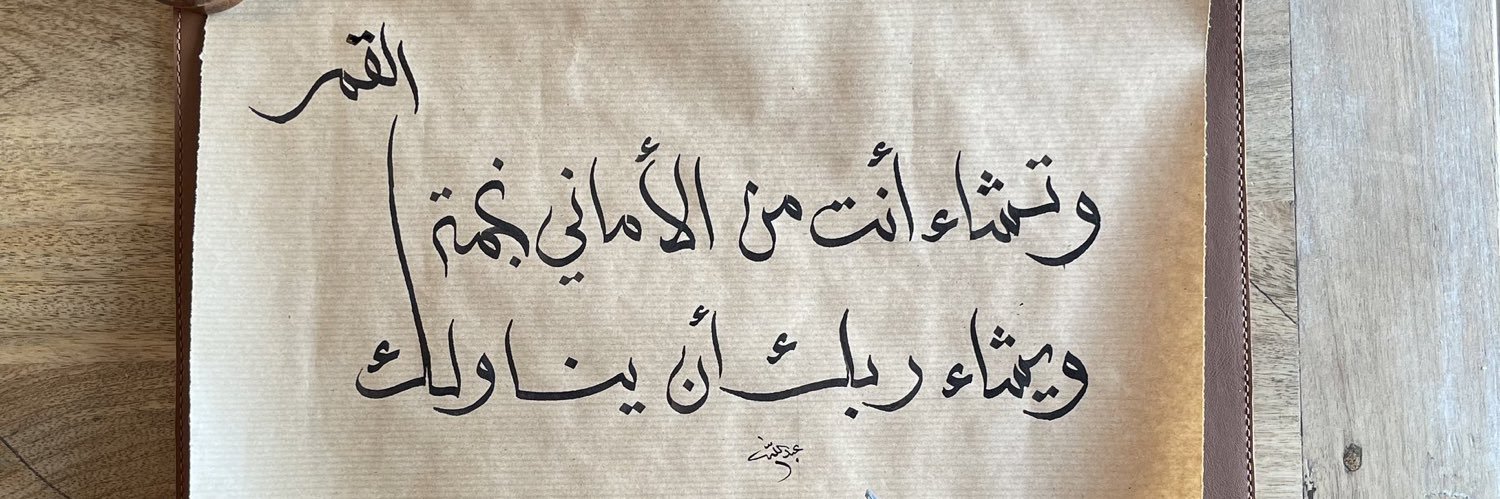 وتشاء أنت من الأماني نجمة
ويشاء ربك أن يناولك
القمر